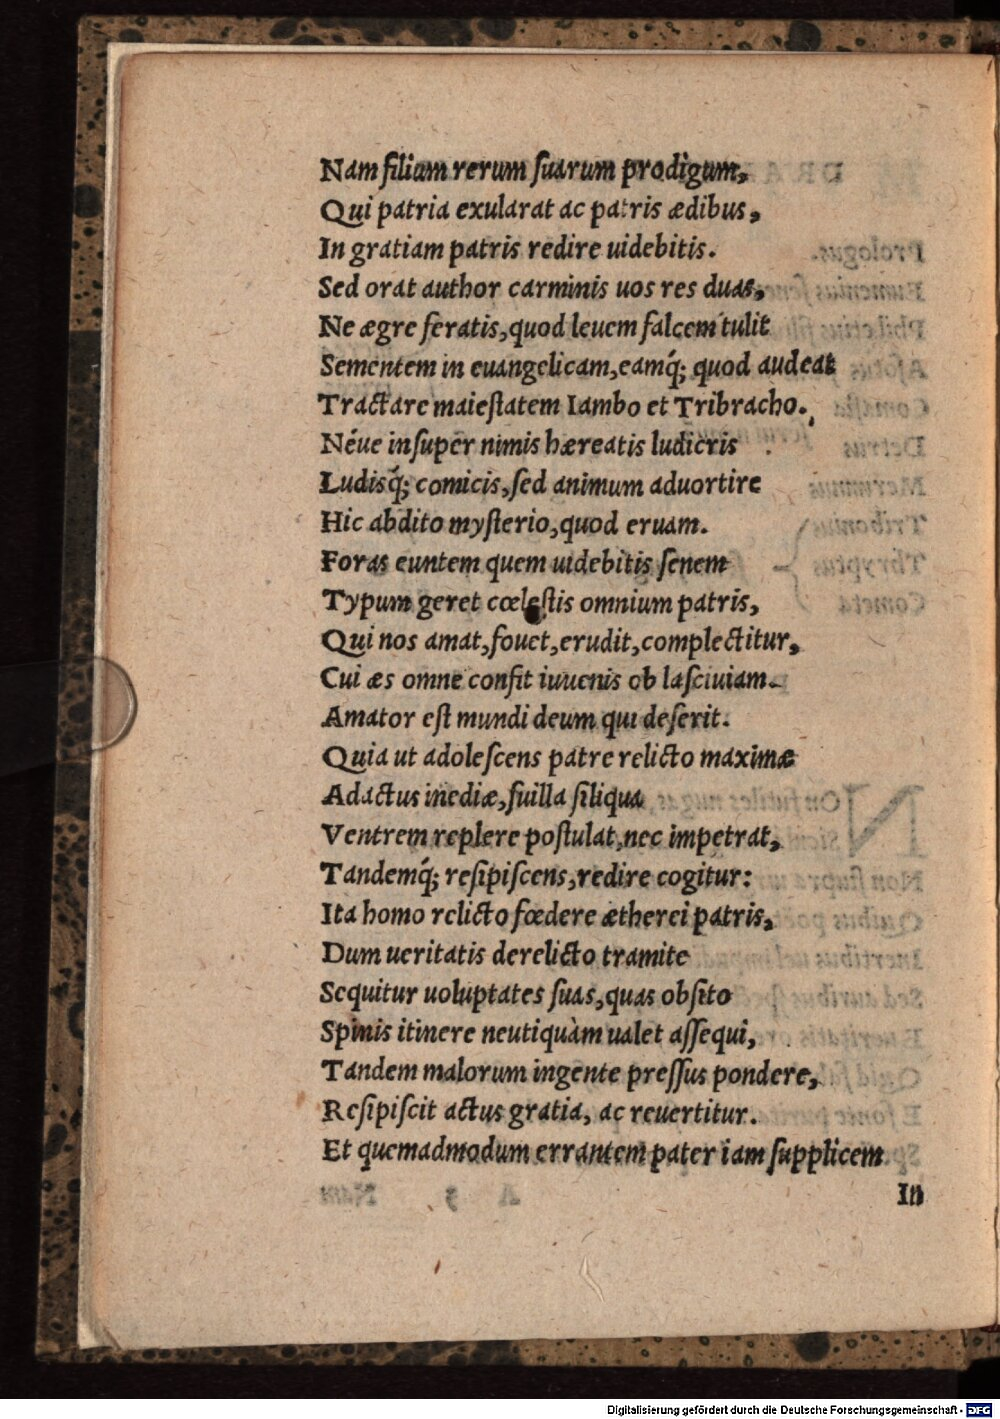 Nam filium rerum ſuarum prodigum,
Qui patria exularat ac patris ædibus,
In gratiam patris redire uidebitis.
Sed orat author carminis uos res duas,
Ne ægre feratis, quod leuem falcem tulit
Sementem in euangelicam, eamq́; quod audeat
Tractare maieſtatem Iambo et Tribracho.
Néue inſuper nimis hæreatis ludicris
Ludisq́; comicis, ſed animum aduortire
Hic abdito myſterio, quod eruam.
Foras euntem quem uidebitis ſenem
Typum geret cœleſtis omnium patris,
Qui nos amat, fouet, erudit, complectitur,
Cui æs omne confit iuuenis ob laſciuiam.
Amator eſt mundi deum qui deſerit.
Quia ut adoleſcens patre relicto maximæ
Adactus inediæ, ſuilla ſiliqua
Ventrem replere poſtulat, nec impetrat,
Tandemq́; reſipiſcens, redire cogitur:
Ita homo relicto fœdere ætherei patris,
Dum ueritatis derelicto tramite
Sequitur uoluptates ſuas, quas obſito
Spinis itinere neutiquàm ualet aſſequi,
Tandem malorum ingente preſſus pondere,
Reſipiſcit actus gratia, ac reuertitur.
Et quemadmodum errantem pater iam ſupplicem
In
Digitalisierung gefördert durch die Deutsche Forschungsgemeinschaft - DFG